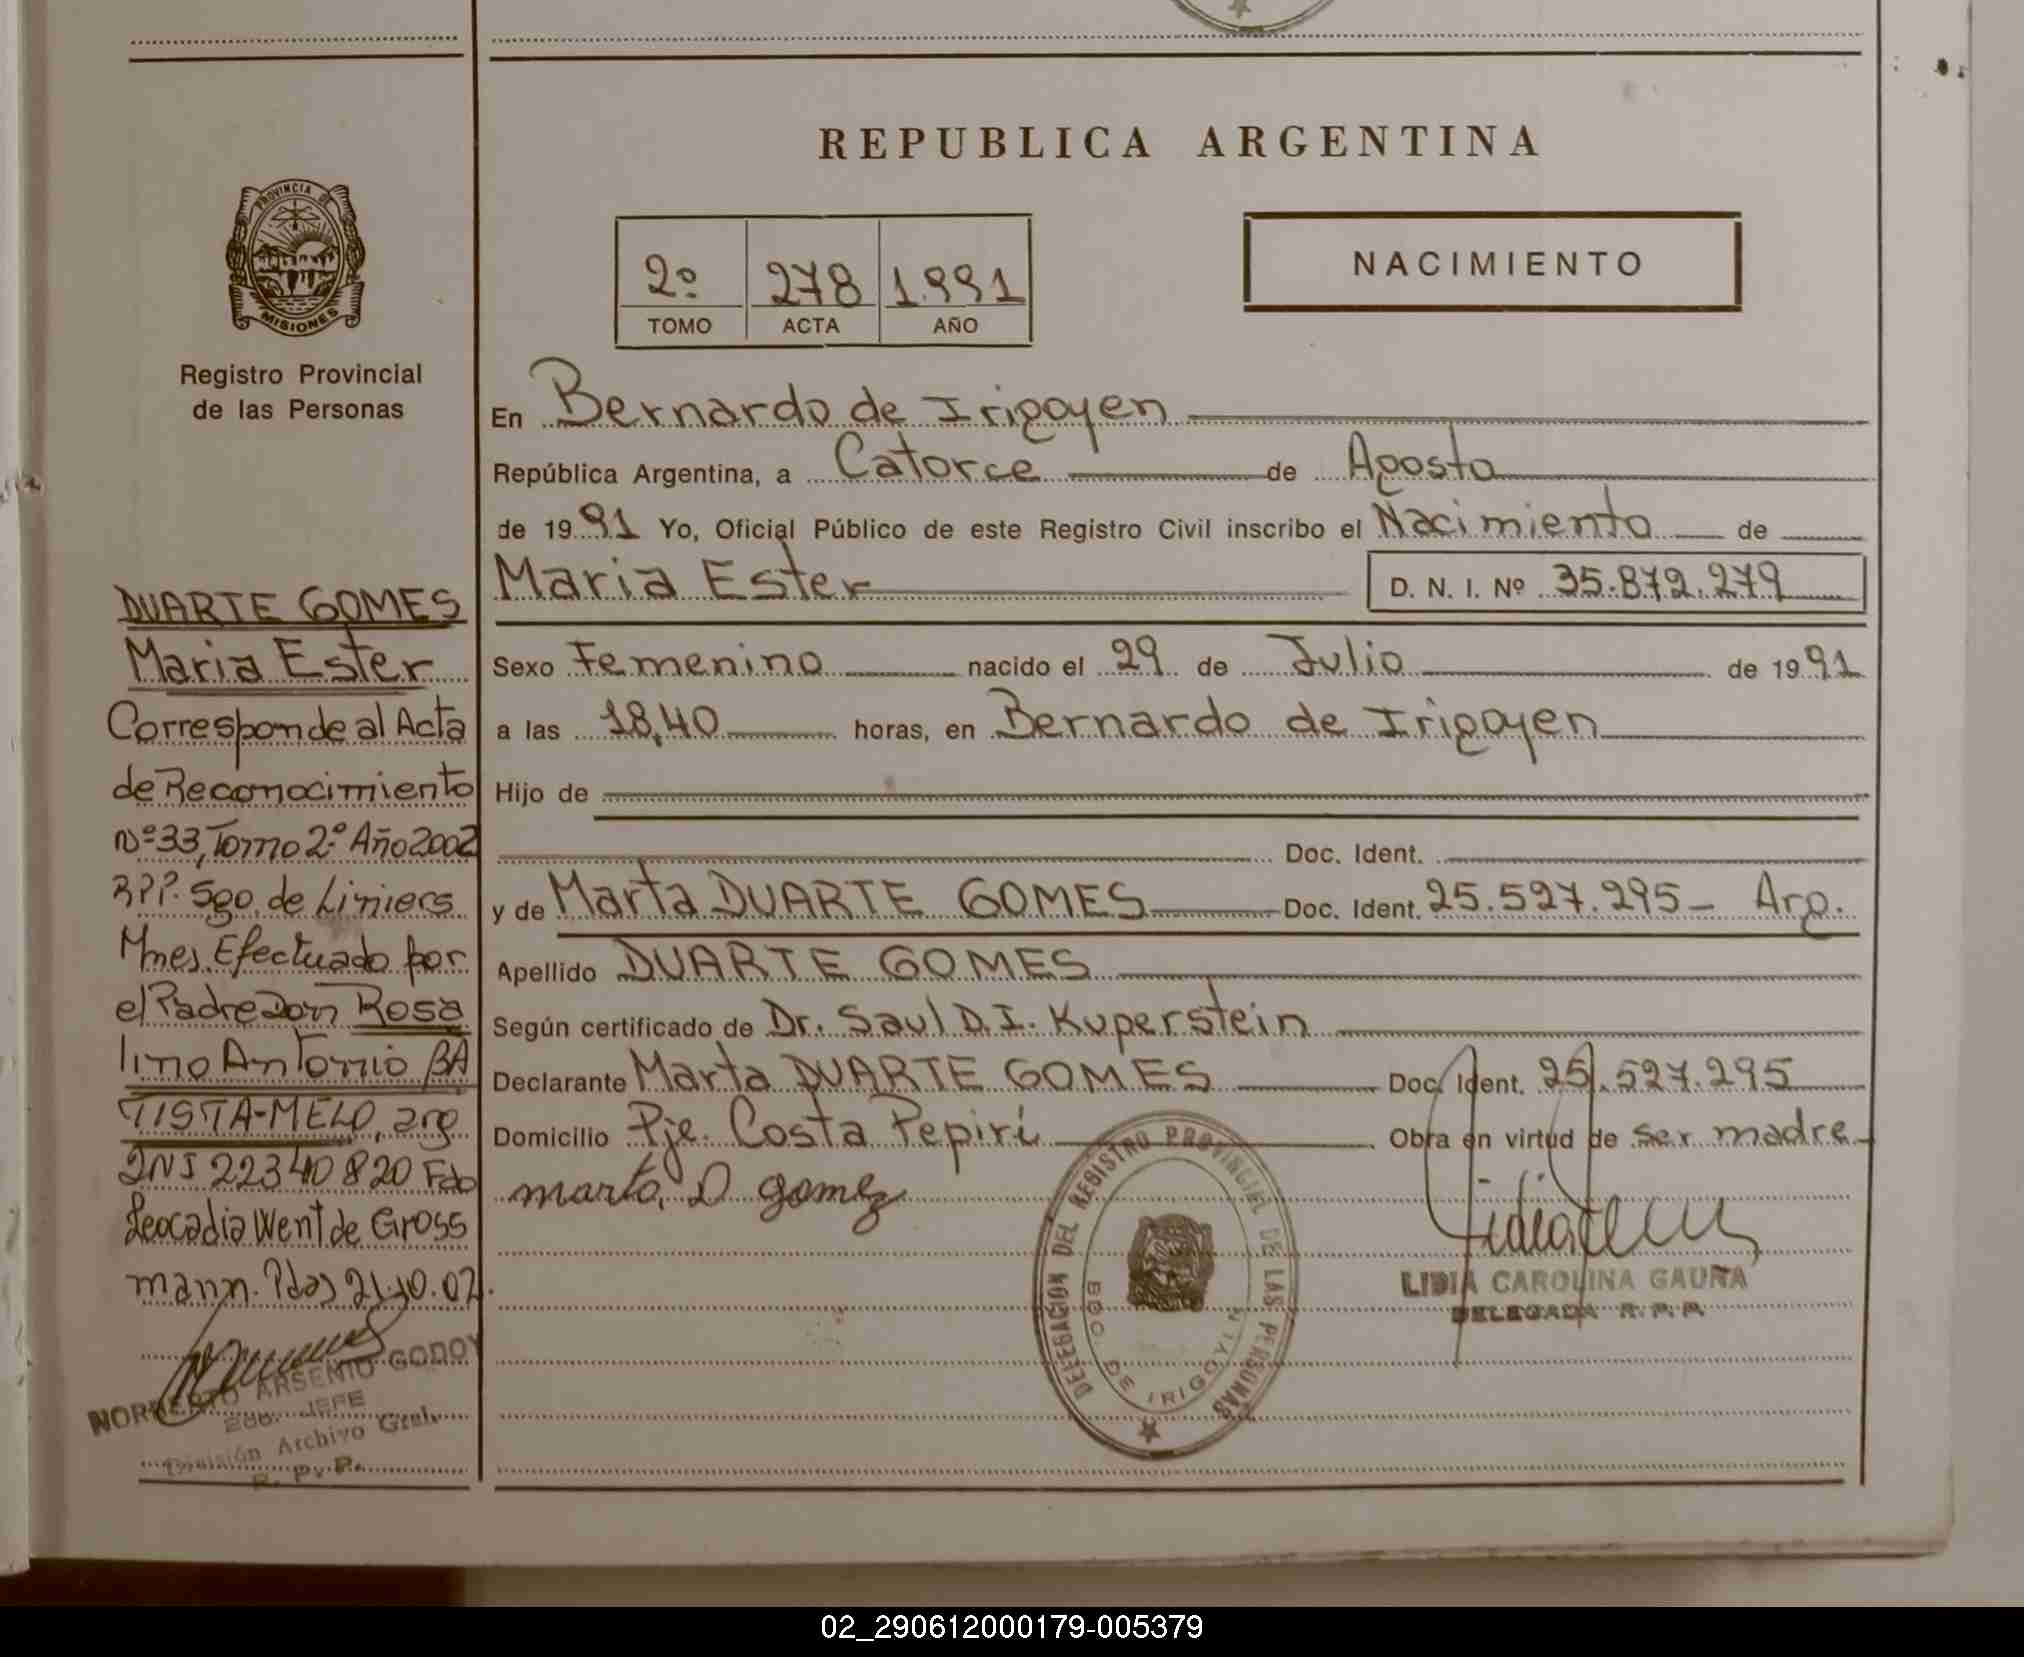 REPUBLICA ARGENTINA
PROVINCIA DE
MISIONES
Registro Provincial
de las Personas
2º 278 1.991
TOMO ACTA AÑO
NACIMIENTO
En Bernardo de Irigoyen
República Argentina, a Catorce de Agosto
de 1991 Yo, Oficial Público de este Registro Civil inscribo el Nacimiento de
Maria Ester D. N. I. Nº 35.872.279
Sexo Femenino nacido el 29 de Julio de 1991
a las 18,40 horas, en Bernardo de Irigoyen
Hijo de
Doc. Ident.
y de Marta DUARTE GOMES Doc. Ident. 25.527.295- Arg.
Apellido DUARTE GOMES
Según certificado de Dr. Saul D.I. Kuperstein
Declarante Marta DUARTE GOMES Doc. Ident. 25.527.295
Domicilio Pje. Costa Pepirí Obra en virtud de ser madre
marta D gomez
LIDIA CAROLINA GAUNA
DELEGADA R. P. P.
DELEGACION DEL REGISTRO PROVINCIAL DE LAS PERSONAS
BDO. DE IRIGOYIN
DUARTE GOMES
Maria Ester
Corresponde al Acta
de Reconocimiento
Nº33, Tomo 2º Año 2002
RPP. Sgo. de Liniers
Mnes. Efectuado por
el Padre Don Rosa
lino Antonio BA
TISTA-MELO, arg
DNI 22340820 Fdo
Leocadia Went de Gross
mann. Pdas 21.10.02.
NORBERTO ARSENIO GODOY
JEFE
División Archivo Gral.
R. P. P.
02_290612000179-005379